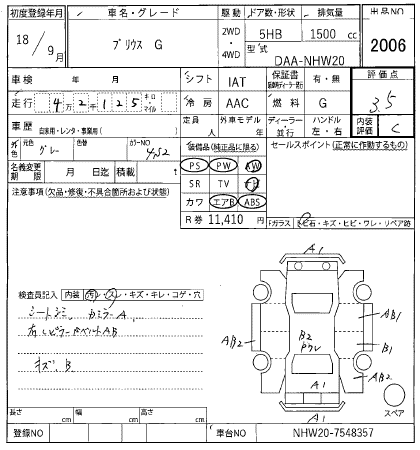 初度登録年月 車名・グレード 駆動 ドア数・形状 排気量 出品NO
18/9月 プリウス G 2WD・4WD 5HB 1500 cc 2006
型式 DAA-NHW20
車検 年 月 シフト IAT 保証書 有・無 評価点
走行 4万2千125 キロ・マイル 冷房 AAC 燃料 G 3.5
車歴 自家用・レンタ・事業用( ) 定員 人 外車モデル 年 ディーラー・並行 ハンドル 左・右 内装評価 C
外色 元色 グレー 色替 カラーNO 装備品(純正品に限る) セールスポイント(正常に作動するもの)
名義変更期限 月 日迄 積載 t PS PW AW
注意事項(欠品・修復・不具合箇所および状態) SR TV
カワ エアB ABS
R券 11,410 円 Fガラス トビ石・キズ・ヒビ・ワレ・リペア跡
A1
検査員記入 内装 汚れ・スレ・キズ・キレ・コゲ・穴
シートシミ
AB2 B2 AB1
B1
キズ B
A1 AB2
A1 スペア
長さ cm 幅 cm 高さ cm
登録NO 車台NO NHW20-7548357